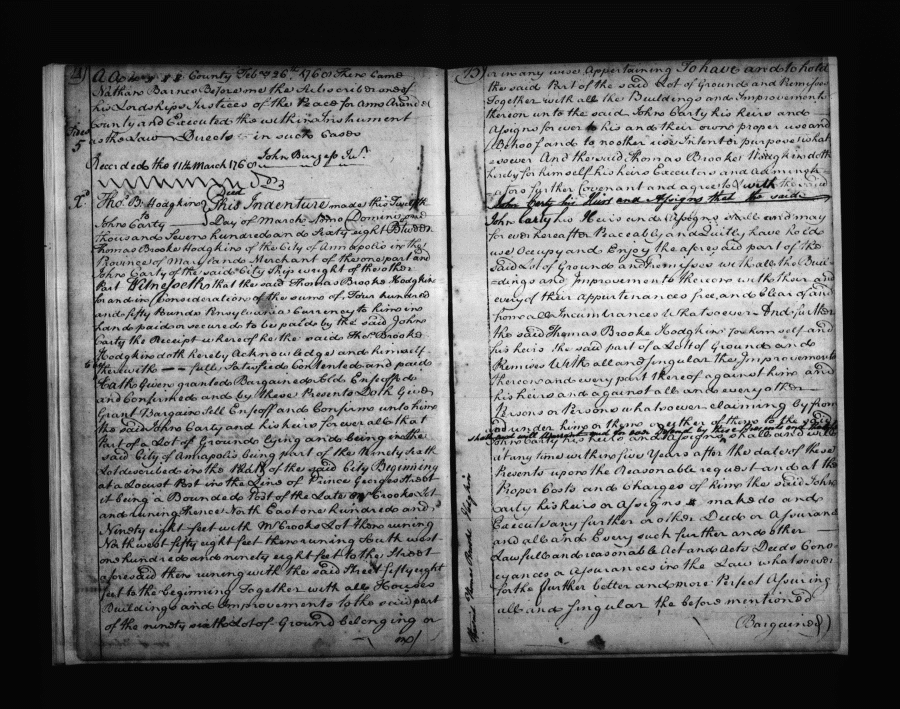 A A County Feb 26th 1760 Then Came
Nathan Barnes Before me the Subscriber one of
his Lordships Justices of the Peace for Ann Arundel
County and Executed the within Instrument
as the Law Directs in such Cases
John Burgess Junr
Recorded the 11th March 1760
Deed
Tho. B. Hodgkin This Indenture made this Twelfth
to
John Carty Day of March Anno Domini one
thousand Seven hundred and Sixty eight Between
Thomas Brooke Hodgkin of the City of Annapolis in the
Province of Maryland Merchant of the one part and
John Carty of the said City Ship wright of the other
Part Witnesseth that the said Thomas Brooke Hodgkin
for and in Consideration of the sum of Four hundred
and fifty Pounds Pensylvania Currency to him in
hand paid or secured to be paid by the said John
Carty the Receipt whereof he the said Thos Brooke
Hodgkin doth hereby Acknowledge and himself
therewith fully Satisfied Contented and paid
Hath Given granted Bargained Sold Enfeoffd
and Confirmed and by these Presents Doth Give
Grant Bargain Sell Enfeoff and Confirm unto him
the said John Carty and his heirs for ever all that
Part of a Lot of Ground lying and being in the
said City of Annapolis being part of the Ninety Sixth
Lot described in the Platt of the said City Beginning
at a Locust Post in the Line of Prince Georges Street
it being a Bounded Post of the Late Crooks Lot
and runing thence North East one hundred and
Ninety eight feet with Mr Crooks Lot then runing
North west fifty eight feet then runing South west
one hundred and ninety eight feet to the Street
aforesaid then runing with the said Street fifty eight
feet to the beginning Together with all Houses
Buildings and improvements to the said part
of the ninety sixth Lot of Ground belonging or
or in any wise Appertaining To have and to hold
the said Part of the said Lot of Ground and Premises
Together with all the Buildings and Improvements
thereon unto the said John Carty his heirs and
Assigns for ever to his and their own proper use and
Behoof and to no other use Intent or purpose what
soever And the said Thomas Brooke Hodgkin doth
hereby for himself his heirs Executors and Adminis
further Covenant and agree to & with the said
John Carty his Heirs and Assigns that the said
John Carty his Heirs and Assigns shall and may
for ever hereafter Peaceably and Quietly have hold
use Occupy and Enjoy the aforesaid part of the
said Lot of Ground and Premises with all the Buil
=dings and Improvements thereon with their and
every of their Appurtenances free and Clear of and
from all Incumbrances Whatsoever And further
the said Thomas Brooke Hodgkin for himself and
his heirs the said part of a Lot of Ground and
Premises With all and Singular the Improvements
thereon and every part thereof against him and
his heirs and against all and every other
Persons or Persons whatsoever claiming by from
and under him or them or either of them to the said
shall and will Warrant and for ever Defend by these Presents
John Carty his heirs and Assigns shall and will
at any time within five Years after the date of these
Presents upon the Reasonable request and at the
Proper Costs and Charges of him the said John
Carty his heirs or Assigns make do and
Execute any further or other Deed or Assurance
and all and Every such further and other
Lawfull and reasonable Act and Acts Deeds Conv
eyances or Assurances in the Law whatsoever
for the further better and more Perfect Assuring
all and Singular the before mentioned
(Bargained)